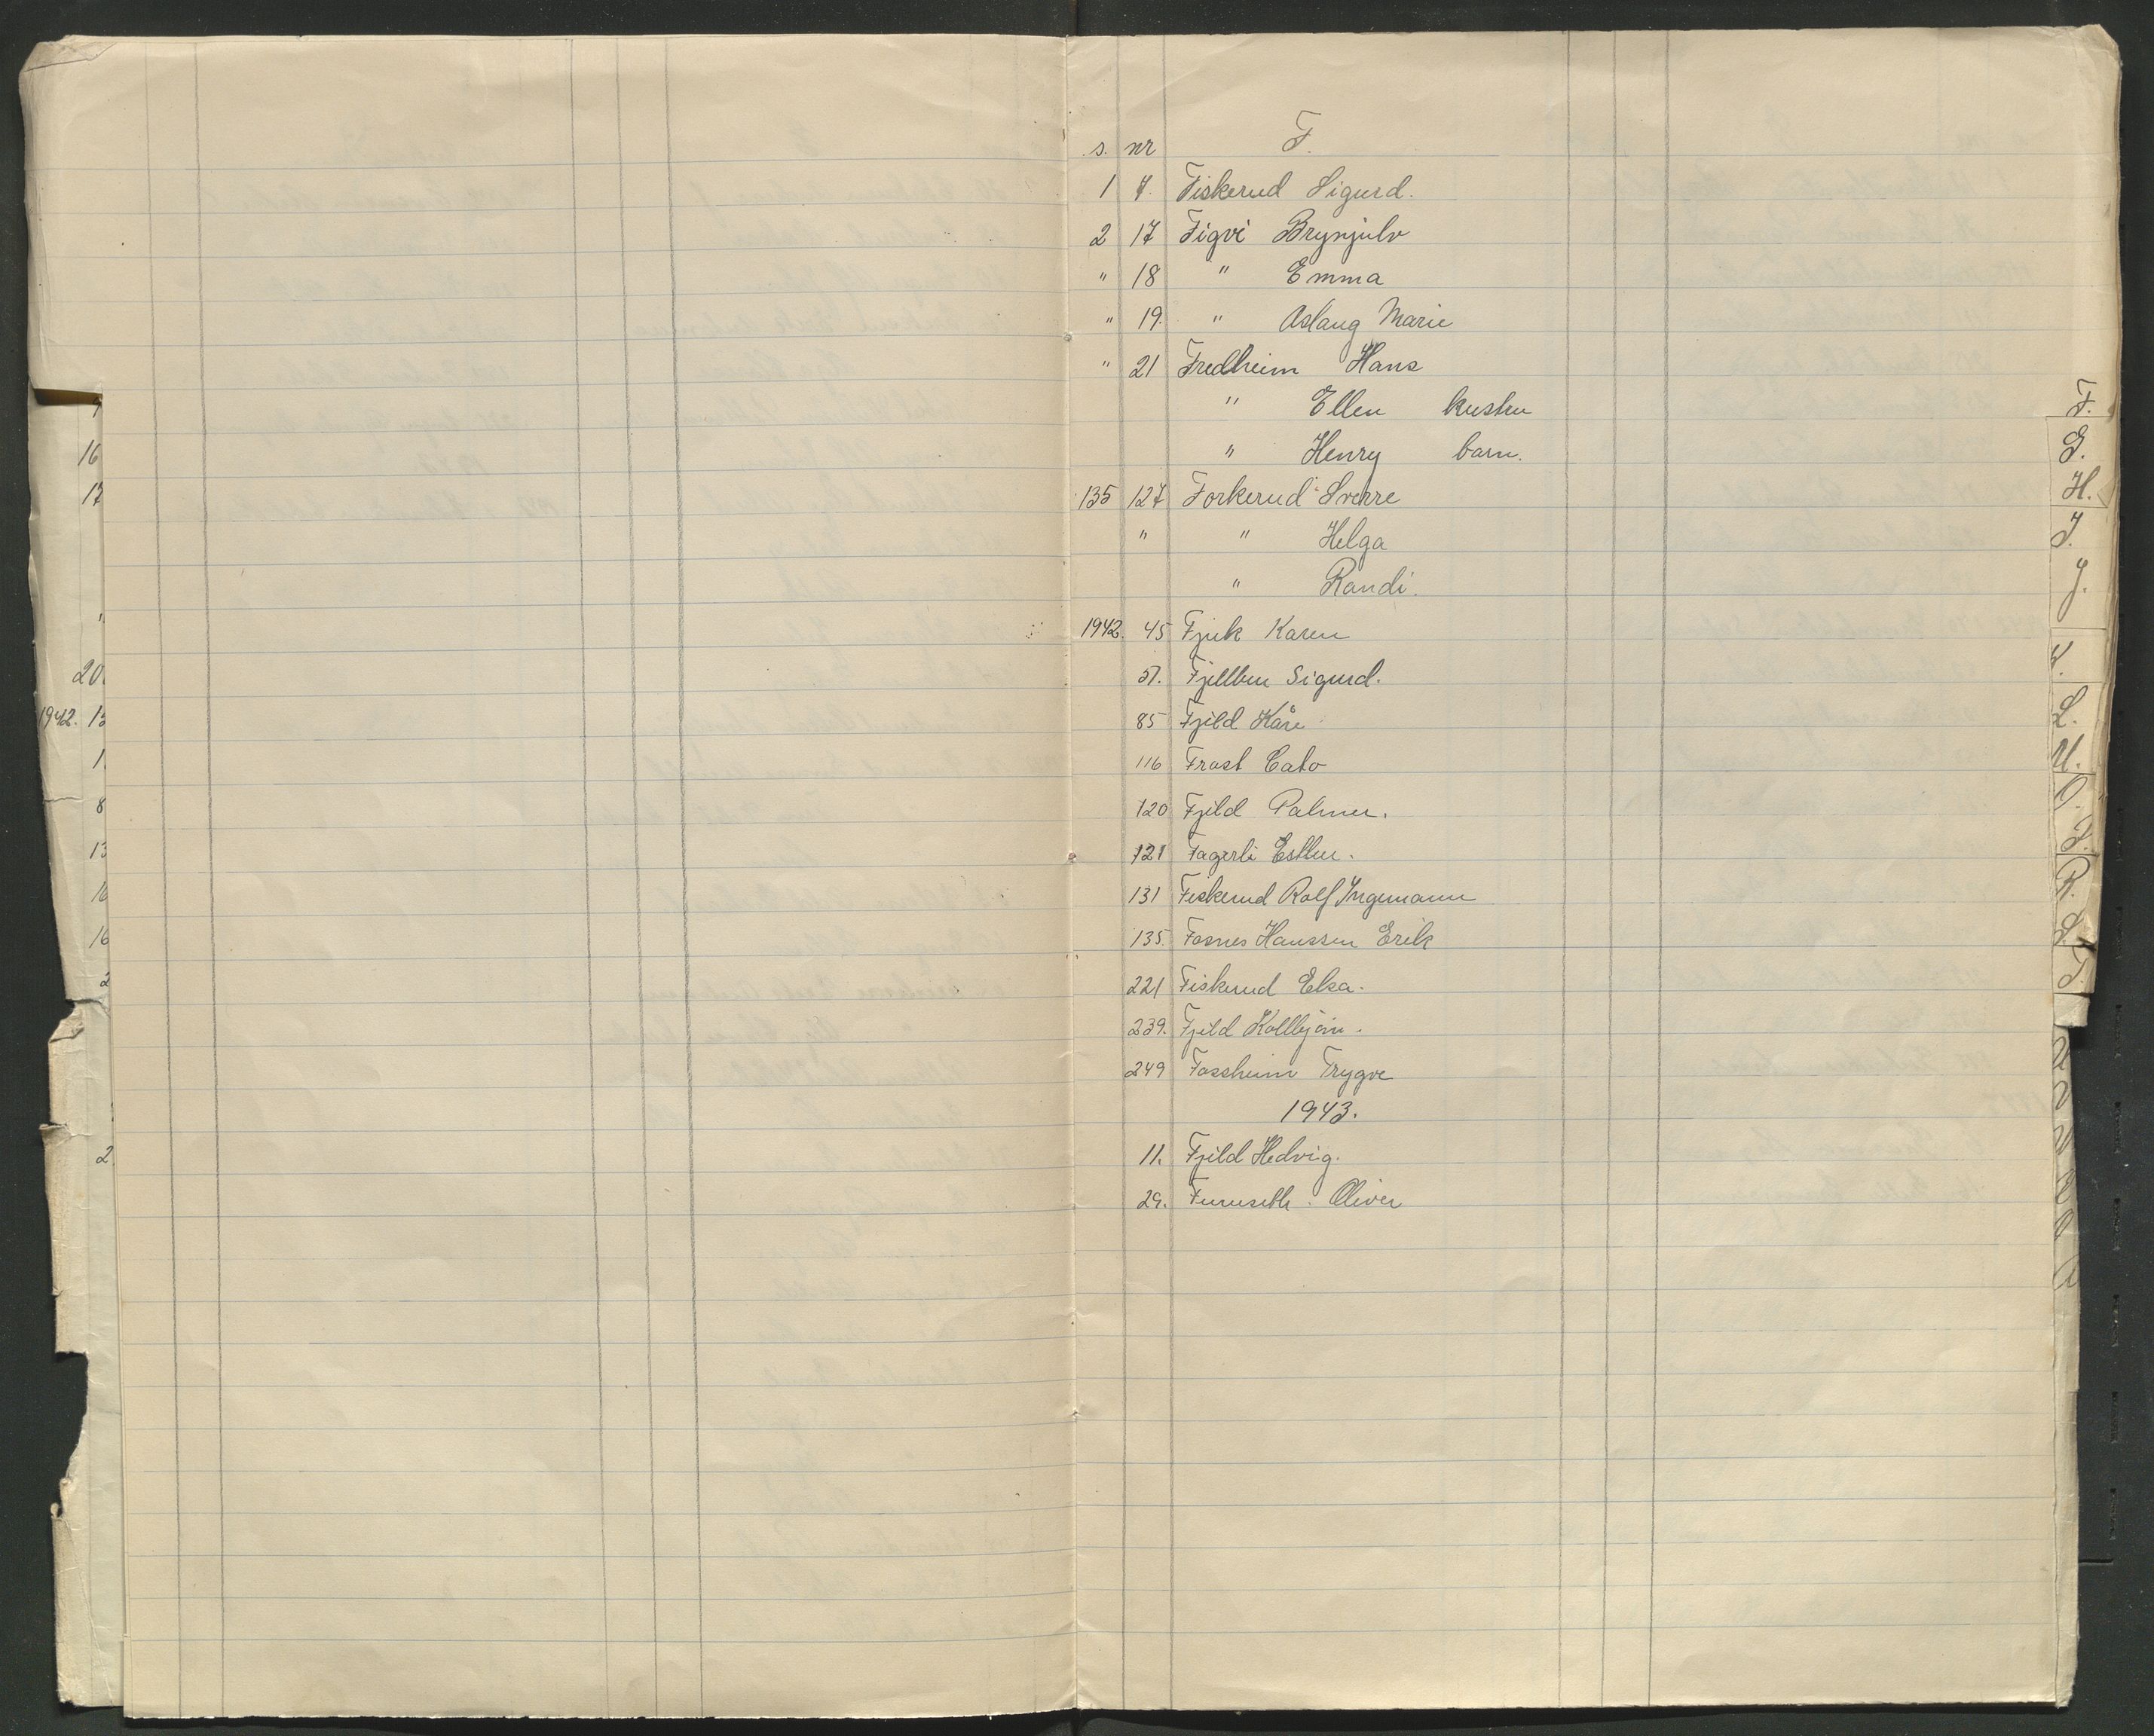 F.
s. nr
1 7. Fiskerud Sigurd.
2 17 Figvi Brynjulv
" 18 " Emma
" 19. " Aslaug Marie
" 21 Fredheim Hans
" Ellen hustru
" Henry barn.
135 127 Forkerud Sverre
" " Helga
" Randi.
1942. 45 Fjuk Karen
51. Fjellbu Sigurd.
85 Fjeld Kåre
116 Frost Cato
120 Fjeld Palmer.
121 Fagerli Esther.
131 Fiskerud Rolf Ingemann
135. Fosnes Hanssen Erik
221 Fiskerud Elsa.
239. Fjeld Kolbjørn.
249 Fossheim Trygve
1943.
11. Fjeld Hedvig.
29. Furuseth. Oliver
16
17
"
20
1942. 13
1
8
13
16
16
2
2
F.
G.
H.
I.
J.
K.
L.
M.
O.
P.
R.
S.
T.